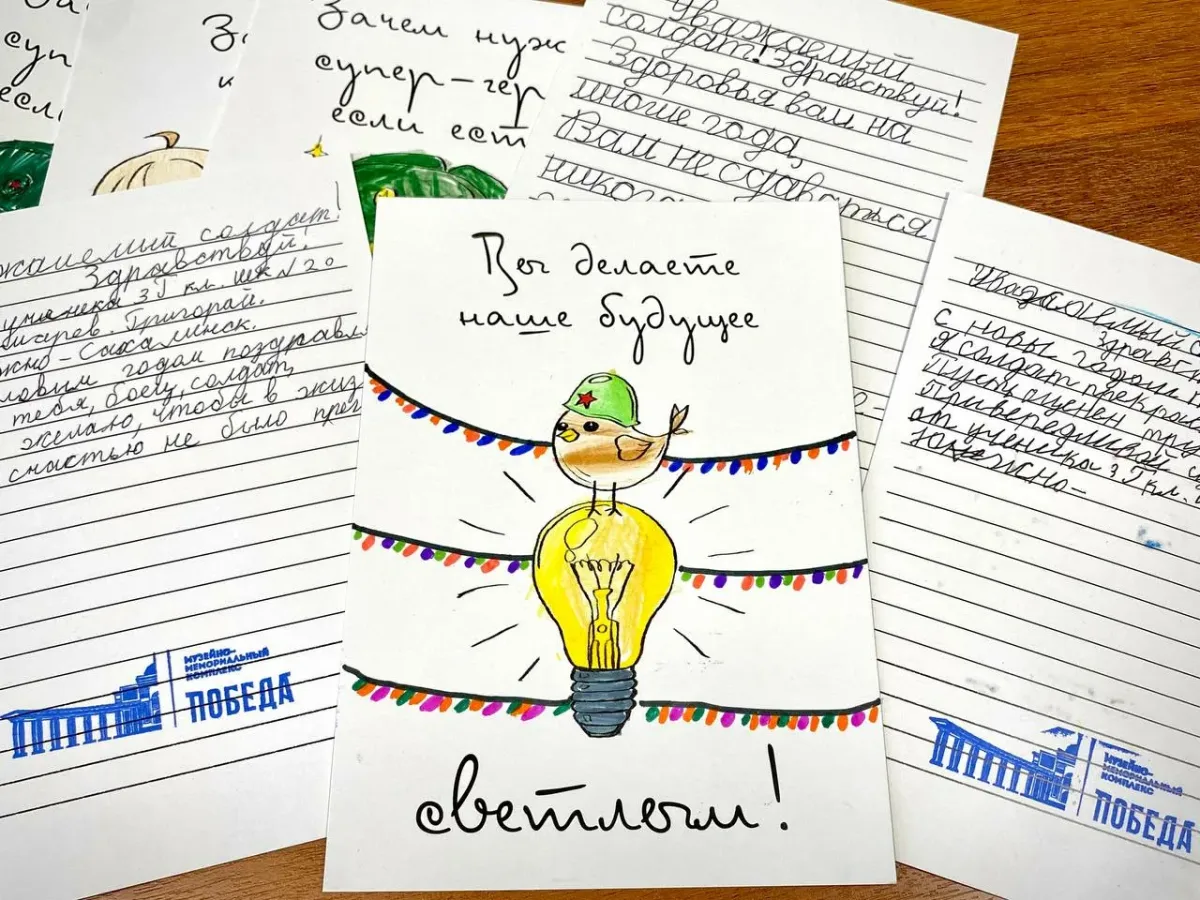 За
суп
есл
За
к
Зачем нуж
супер-гер
если ест
Уважаемый
солдат! Здравствуй!
Здоровья вам на
многие года,
Вам не сдаваться
никога
жаемий солдат!
Здравствуй!
3 Г кл. шк № 20
Григорай.
жно-Сахалинск.
новим годам поздравл
тебя, боец, солдат,
желаю, чтобы в жиз
счастью не было прег
Вы делаете
наше будущее
светлым!
Здравст
с новы годом
я солдат
Пуст
от ученика 3 Г кл.
Южно-
МУЗЕЙНО-
МЕМОРИАЛЬНЫЙ
КОМПЛЕКС
ПОБЕДА
МУЗЕЙНО-
МЕМОРИАЛЬНЫЙ
КОМПЛЕКС
ПОБЕДА